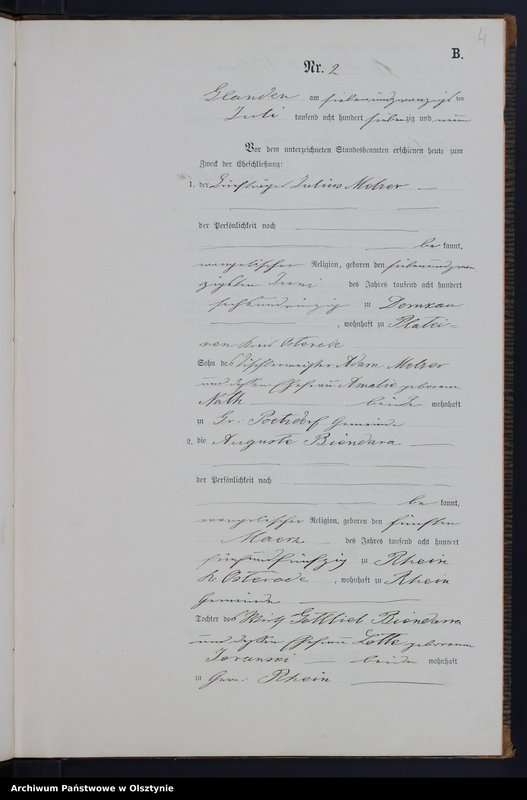 4
B.
Nr. 2
Glanden am siebenundzwanzigsten
Juli tausend acht hundert siebenzig und neun
Vor dem unterzeichneten Standesbeamten erschienen heute zum
Zweck der Eheschließung:
1. der Julius Melzer
der Persönlichkeit nach
bekannt,
evangelischer Religion, geboren den siebenundzwan-
zigsten Juni des Jahres tausend acht hundert
zu Domkau
, wohnhaft zu Platei-
nen Kreis Osterode
Sohn des Tischlermeister Adam Melzer
und dessen Ehefrau Amalie geborene
Nath beide wohnhaft
zu Gr: Poetzdorf Gemeinde
2. die Auguste Biendara
der Persönlichkeit nach
bekannt,
evangelischer Religion, geboren den fünften
Maerz des Jahres tausend acht hundert
fünfundfünfzig zu Rhein
Kr Osterode, wohnhaft zu Rhein
Gemeinde
Tochter des Wirth Gottlieb Biendarra
und dessen Ehefrau Lotte geborene
beide wohnhaft
zu Gem: Rhein
Archiwum Państwowe w Olsztynie